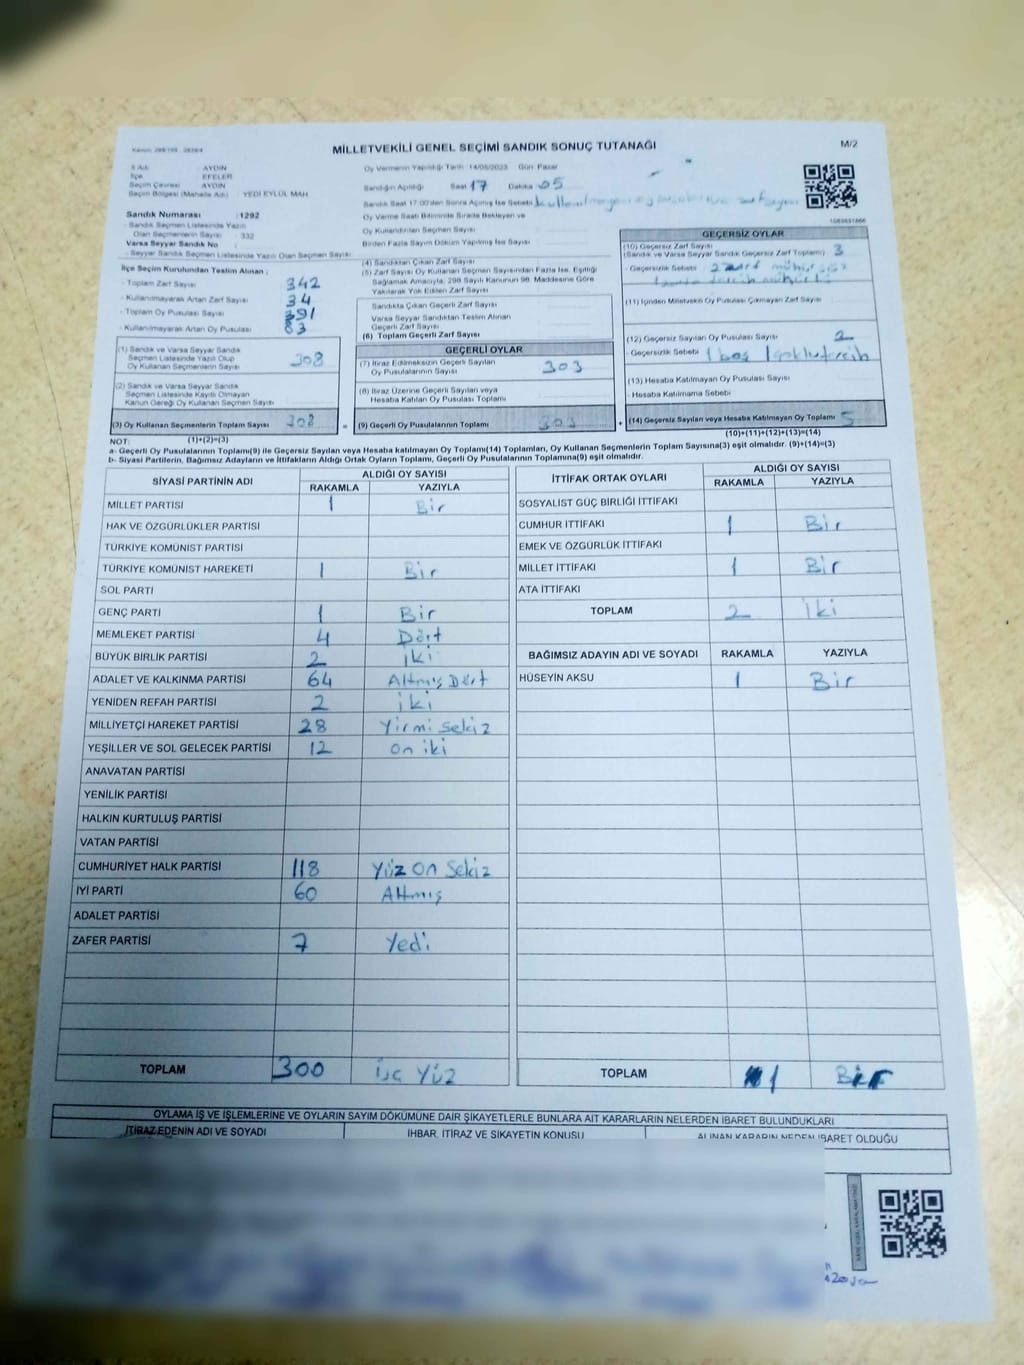 MİLLETVEKİLİ GENEL SEÇİMİ SANDIK SONUÇ TUTANAĞI
M/2
İl Adı AYDIN
İlçe EFELER
Seçim Çevresi AYDIN
Seçim Bölgesi (Mahalle Adı) YEDİ EYLÜL MAH
Oy Vermenin Yapıldığı Tarih 14/05/2023 Gün Pazar
Sandığın Açıldığı Saat 17 Dakika 05
Sandık Saat 17:00'den Sonra Açılmış İse Sebebi
Sandık Numarası :1292
Sandık Seçmen Listesinde Yazılı
Olan Seçmenlerin Sayısı : 332
Varsa Seyyar Sandık No
Seyyar Sandık Seçmen Listesinde Yazılı Olan Seçmen Sayısı
Oy Verme Saati Bitiminde Sırada Bekleyen ve
Oy Kullandırılan Seçmen Sayısı
Birden Fazla Sayım Döküm Yapılmış İse Sayısı
İlçe Seçim Kurulundan Teslim Alınan ;
- Toplam Zarf Sayısı 342
- Kullanılmayarak Artan Zarf Sayısı 34
- Toplam Oy Pusulası Sayısı 391
- Kullanılmayarak Artan Oy Pusulası 83
(1) Sandık ve Varsa Seyyar Sandık
Seçmen Listesinde Yazılı Olup
Oy Kullanan Seçmen Sayısı 308
(2) Sandık ve Varsa Seyyar Sandık
Seçmen Listesinde Kayıtlı Olmayan
Kanun Gereği Oy Kullanan Seçmen Sayısı
(3) Oy Kullanan Seçmenlerin Toplam Sayısı 308
(1)+(2)=(3)
(4) Sandıktan Çıkan Zarf Sayısı
(5) Zarf Sayısı Oy Kullanan Seçmen Sayısından Fazla İse, Eşitliği
Sağlamak Amacıyla, 298 Sayılı Kanunun 98. Maddesine Göre
Yakılarak Yok Edilen Zarf Sayısı
Sandıkta Çıkan Geçerli Zarf Sayısı
Varsa Seyyar Sandıktan Teslim Alınan
Geçerli Zarf Sayısı
(6) Toplam Geçerli Zarf Sayısı
GEÇERLİ OYLAR
(7) İtiraz Edilmeksizin Geçerli Sayılan
Oy Pusulalarının Sayısı 303
(8) İtiraz Üzerine Geçerli Sayılan veya
Hesaba Katılan Oy Pusulası Toplamı
= (9) Geçerli Oy Pusulalarının Toplamı 303
GEÇERSİZ OYLAR
(10) Geçersiz Zarf Sayısı
(Sandık ve Varsa Seyyar Sandık Geçersiz Zarf Toplamı) 3
- Geçersizlik Sebebi 2 zarf mühürsüz
(11) İçinden Milletvekili Oy Pusulası Çıkmayan Zarf Sayısı
(12) Geçersiz Sayılan Oy Pusulası Sayısı 2
- Geçersizlik Sebebi 1 boş 1 çoklu tercih
(13) Hesaba Katılmayan Oy Pusulası Sayısı
- Hesaba Katılmama Sebebi
+ (14) Geçersiz Sayılan veya Hesaba Katılmayan Oy Toplamı 5
(10)+(11)+(12)+(13)=(14)
NOT:
a- Geçerli Oy Pusulalarının Toplamı(9) ile Geçersiz Sayılan veya Hesaba katılmayan Oy Toplamı(14) Toplamları, Oy Kullanan Seçmenlerin Toplam Sayısına(3) eşit olmalıdır. (9)+(14)=(3)
b- Siyasi Partilerin, Bağımsız Adayların ve İttifakların Aldığı Ortak Oyların Toplamı, Geçerli Oy Pusulalarının Toplamına(9) eşit olmalıdır.
SİYASİ PARTİNİN ADI ALDIĞI OY SAYISI
RAKAMLA YAZIYLA
MİLLET PARTİSİ 1 Bir
HAK VE ÖZGÜRLÜKLER PARTİSİ
TÜRKİYE KOMÜNİST PARTİSİ
TÜRKİYE KOMÜNİST HAREKETİ 1 Bir
SOL PARTİ
GENÇ PARTİ 1 Bir
MEMLEKET PARTİSİ 4 Dört
BÜYÜK BİRLİK PARTİSİ 2 iki
ADALET VE KALKINMA PARTİSİ 64 Altmış Dört
YENİDEN REFAH PARTİSİ 2 iki
MİLLİYETÇİ HAREKET PARTİSİ 28 Yirmi sekiz
YEŞİLLER VE SOL GELECEK PARTİSİ 12 on iki
ANAVATAN PARTİSİ
YENİLİK PARTİSİ
HALKIN KURTULUŞ PARTİSİ
VATAN PARTİSİ
CUMHURİYET HALK PARTİSİ 118 Yüz on sekiz
İYİ PARTİ 60 Altmış
ADALET PARTİSİ
ZAFER PARTİSİ 7 Yedi
TOPLAM 300 üç Yüz
İTTİFAK ORTAK OYLARI ALDIĞI OY SAYISI
RAKAMLA YAZIYLA
SOSYALİST GÜÇ BİRLİĞİ İTTİFAKI
CUMHUR İTTİFAKI 1 Bir
EMEK VE ÖZGÜRLÜK İTTİFAKI
MİLLET İTTİFAKI 1 Bir
ATA İTTİFAKI
TOPLAM 2 iki
BAĞIMSIZ ADAYIN ADI VE SOYADI RAKAMLA YAZIYLA
HÜSEYİN AKSU 1 Bir
TOPLAM 1 Bir
OYLAMA İŞ VE İŞLEMLERİNE VE OYLARIN SAYIM DÖKÜMÜNE DAİR ŞİKAYETLERLE BUNLARA AİT KARARLARIN NELERDEN İBARET BULUNDUKLARI
İTİRAZ EDENİN ADI VE SOYADI İHBAR, İTİRAZ VE ŞİKAYETİN KONUSU ALINAN KARARIN NEDEN İBARET OLDUĞU